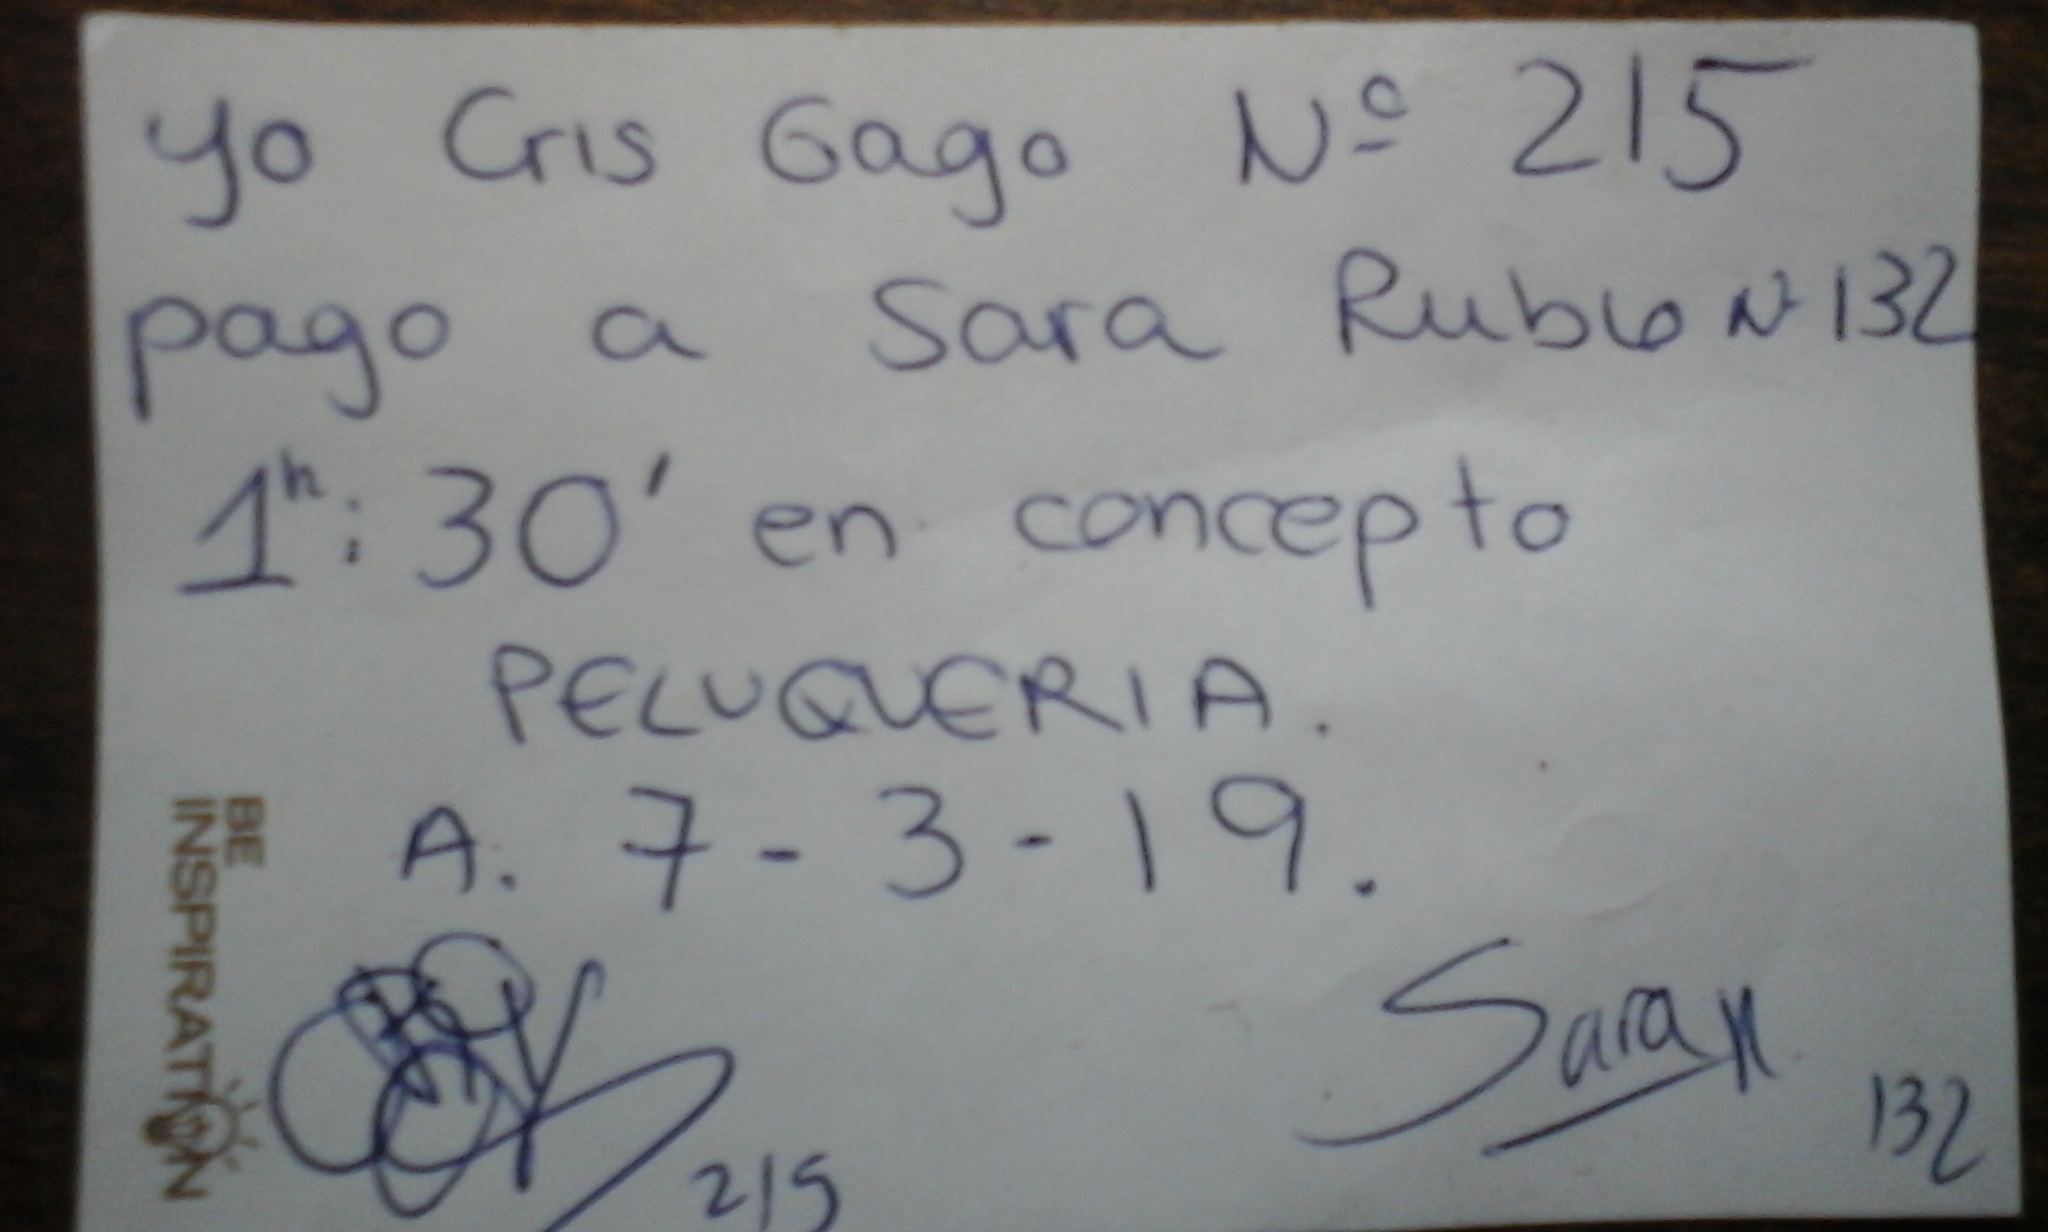 yo Cris Gago Nº 215
pago a Sara Rubio Nº 132
1h: 30' en concepto
PELUQUERIA.
A. 7-3-19.
BE
INSPIRATION
215
Sara
132